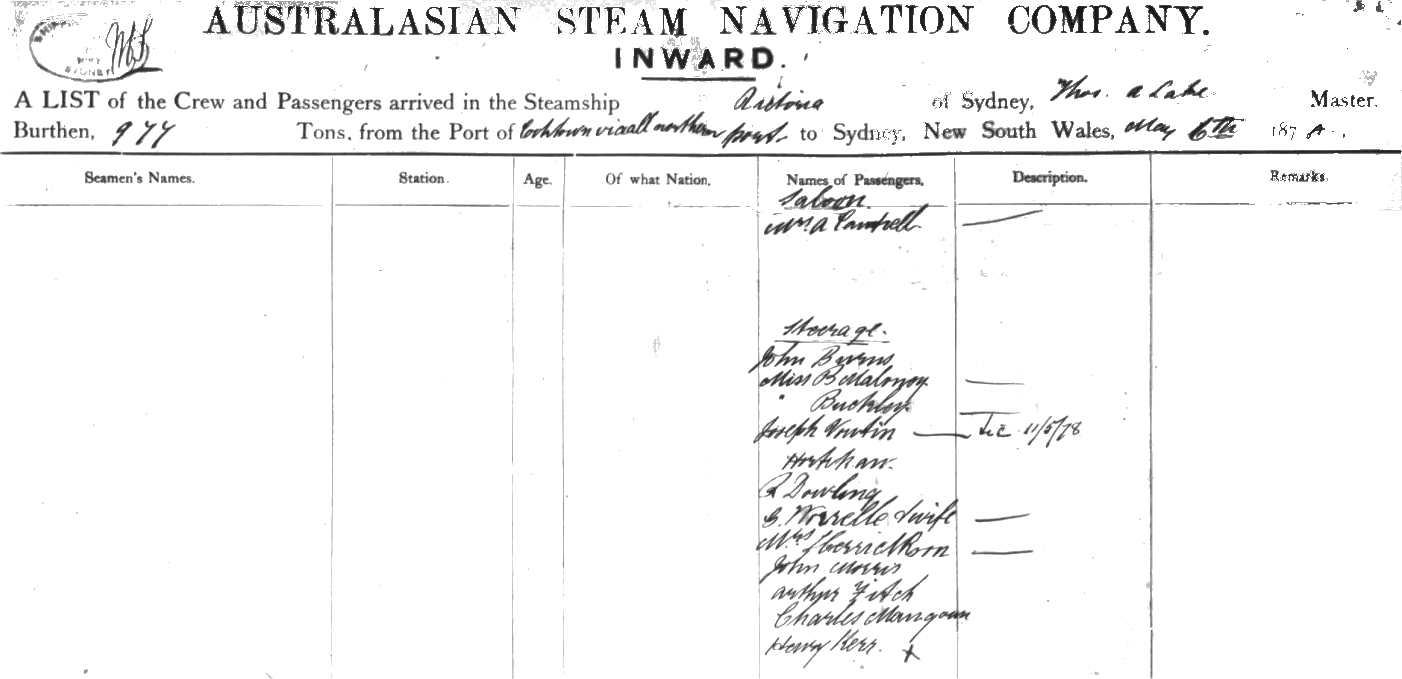 AUSTRALASIAN STEAM NAVIGATION COMPANY.
INWARD.
SYDNEY
A LIST of the Crew and Passengers arrived in the Steamship Victoria of Sydney, Thos. A Lake Master.
Burthen, 977 Tons, from the Port of Cooktown via all northern ports to Sydney, New South Wales, May 6th 187
Seamen's Names. Station. Age. Of what Nation. Names of Passengers. Description. Remarks.
Saloon.
Mrs. A
Steerage.
John Burns
Miss B Maloney
" Buckley
Joseph Voutin 11/5/78
R Dowling
G. Worrelle & wife
Mrs
John Morris
Arthur Fitch
Charles
Henry Kerr. x